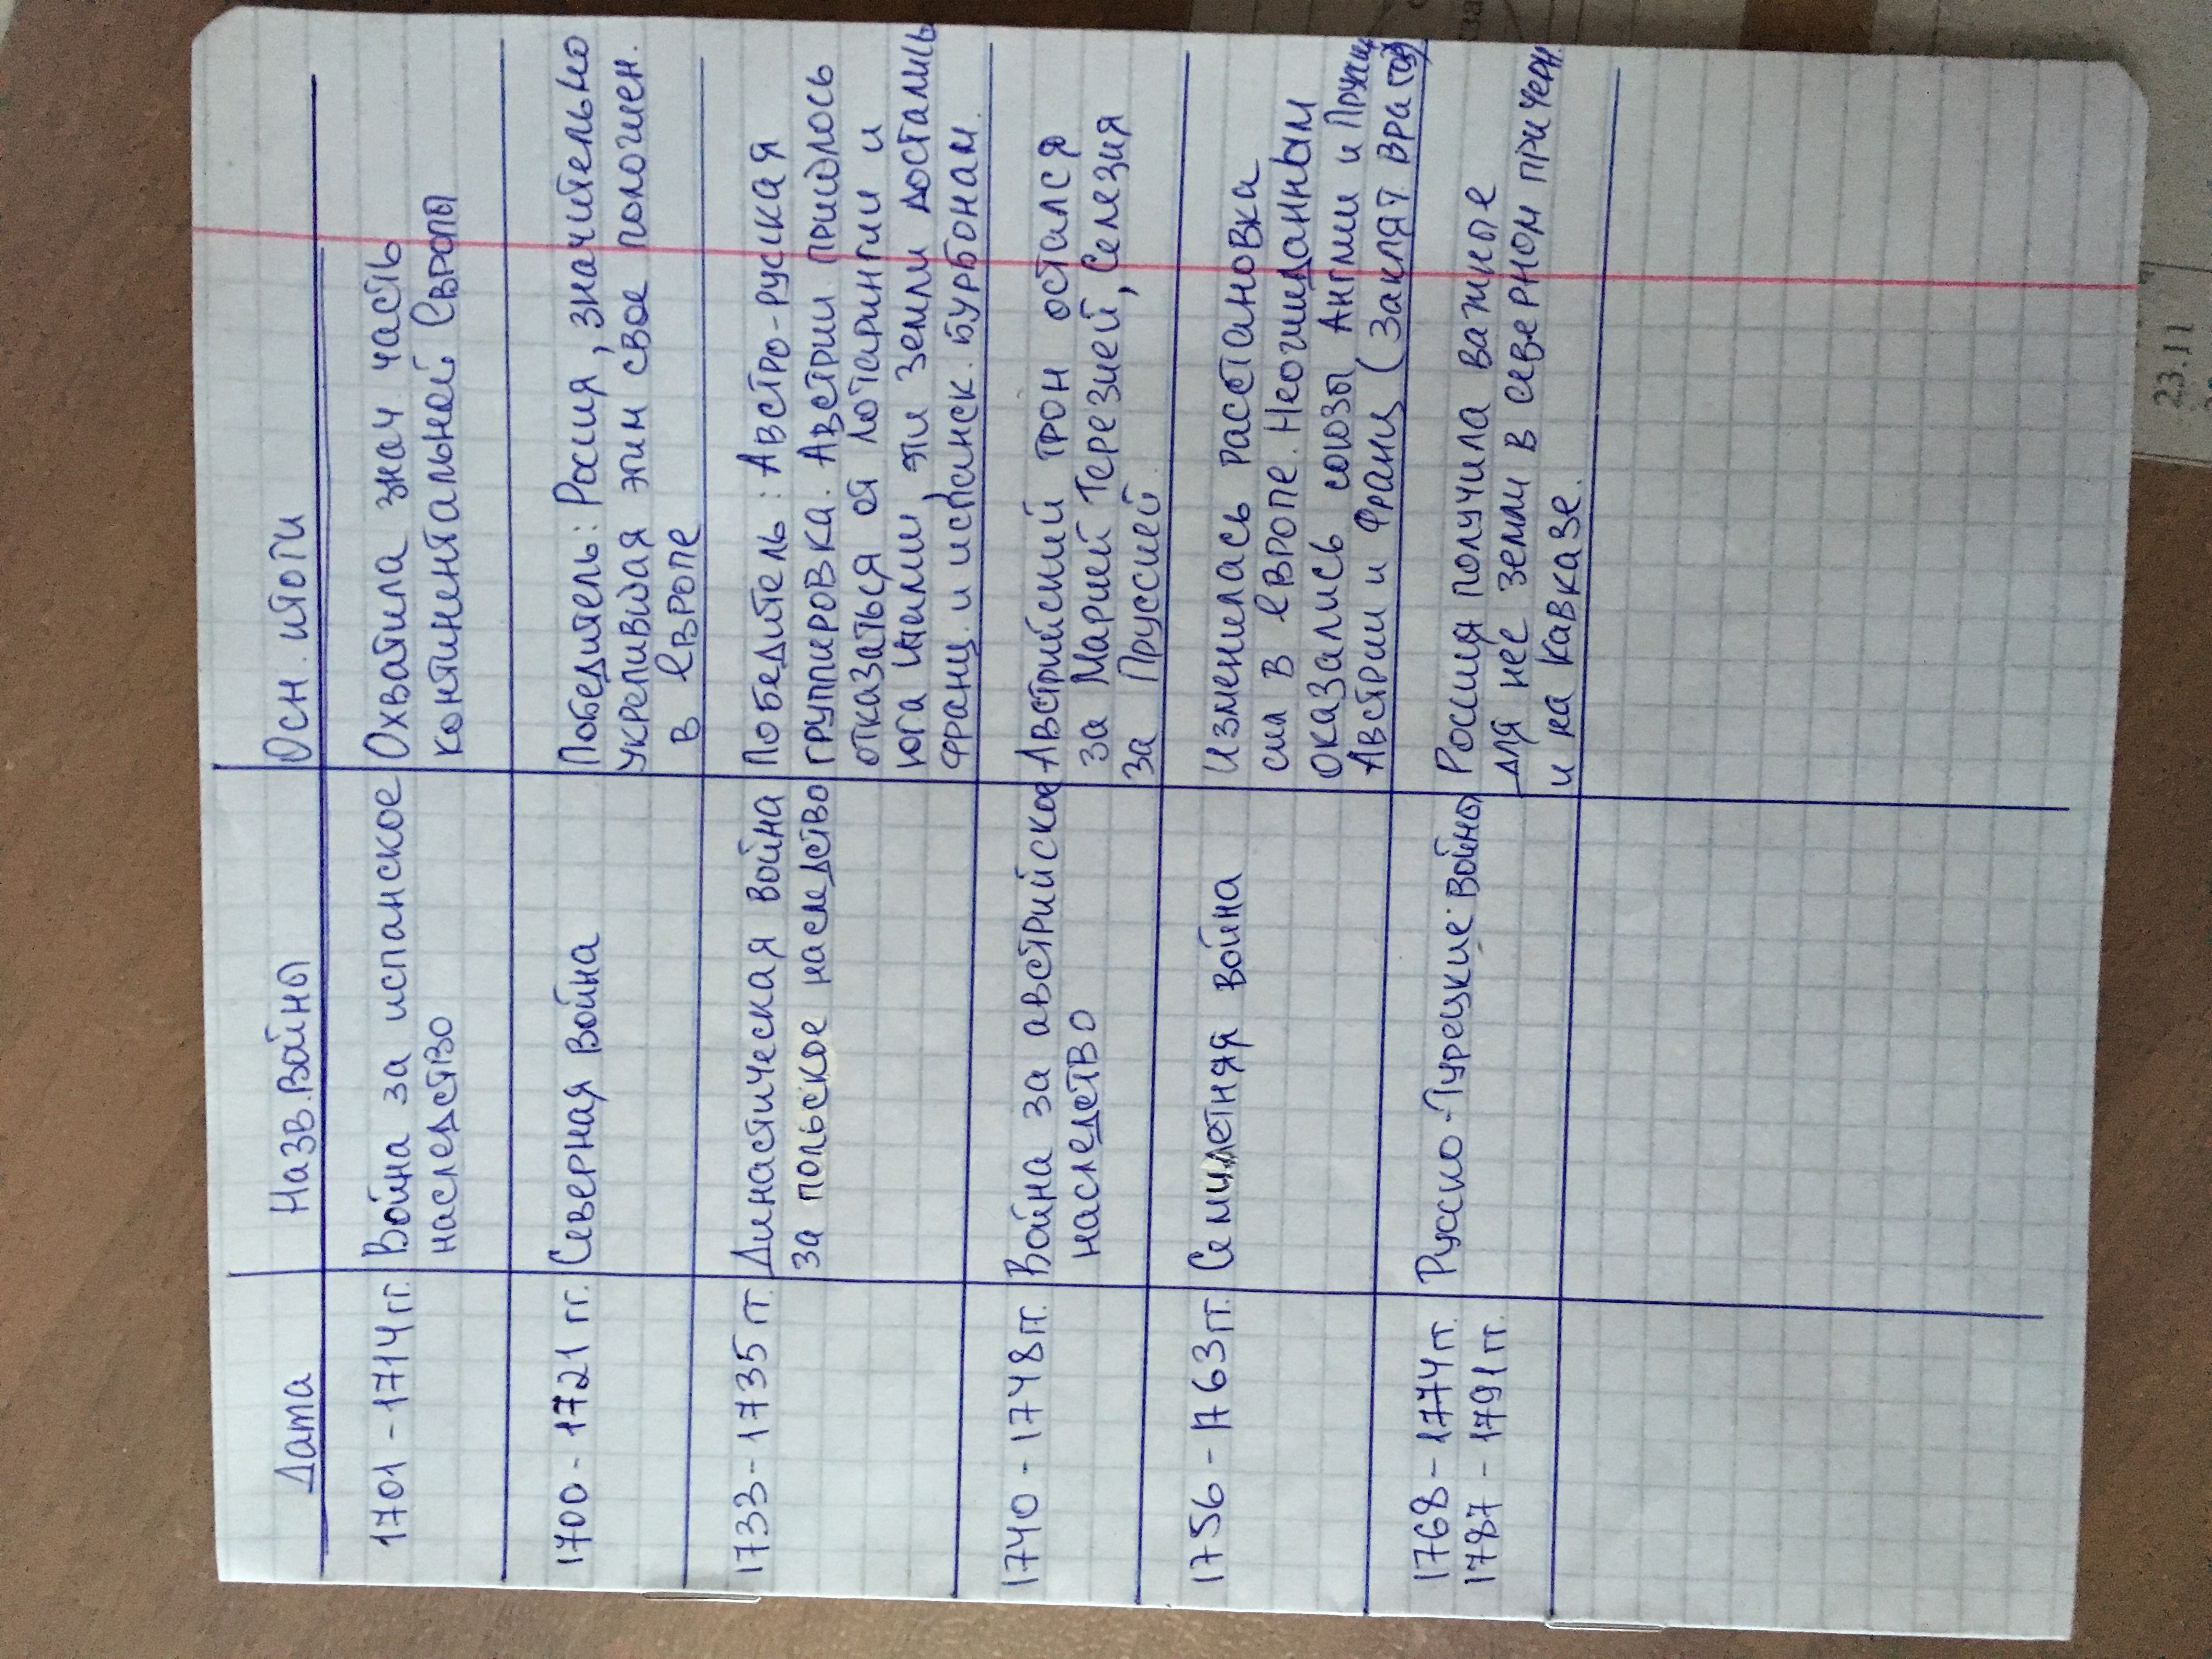 Дата Назв. Войны Осн. итоги
1701 - 1714 гг. Война за испанское Охватила знач. часть
наследство континентальной Европы
1700 - 1721 гг. Северная Война Победитель: Россия, значительно
укрепившая этим свое положен.
в Европе
1733 - 1735 гг. Династическая Война Победитель: Австро-руская
за польское наследство группировка. Австрии пришлось
отказаться от Лотарингии и
юга эти земли достались
франц. и испанск. Бурбонам.
1740 - 1748 гг. Война за австрийское Австрийский трон остался
наследство за Марией Терезией, Селезия
за Пруссией.
1756 - 1763 гг. Семилетняя Война Изменилась расстановка
сил в Европе. Неожиданным
оказались союзы Англии и
Австрии и Франц (Заклят. враги)
1768 - 1774 гг. Русско-Турецкие Войны Россия получила важные
1787 - 1791 гг. для неё земли в северном причерн.
и на Кавказе.
23.11